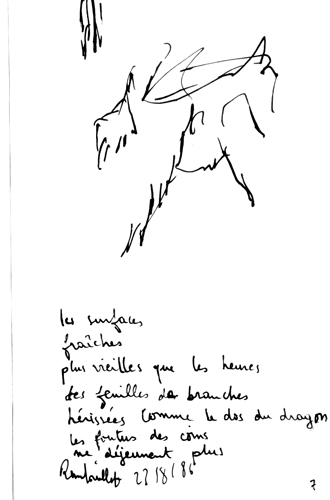 les surfaces
fraîches
plus vieilles que les heures
des feuilles de branches
hérissées comme le dos du dragon
les foutus des coins
ne déjeunent plus
Rambouillet 22/8/86
7